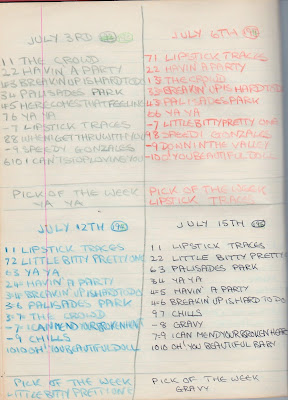 JULY 3RD
1 1 THE CROWD
2 2 HAVIN' A PARTY
4 3 BREAKIN UP IS HARD TO DO
3 4 PALISADES PARK
4 5 HERE COMES THAT FEELING
7 6 YA YA
- 7 LIPSTICK TRACES
8 8 WHEN I GET THRU WITH YOU
- 9 SPEEDY GONZALES
6 10 I CAN'T STOP LOVING YOU
PICK OF THE WEEK
YA YA
JULY 6TH
7 1 LIPSTICK TRACES
2 2 HAVIN' A PARTY
1 3 THE CROWD
3 BREAKIN UP IS HARD TO DO
4 PALISADES PARK
6 6 YA YA
- 7 LITTLE BITTY PRETTY ONE
9 8 SPEEDY GONZALES
- 9 DOWN IN THE VALLEY
- 10 OH YOU BEAUTIFUL DOLL
PICK OF THE WEEK
LIPSTICK TRACES
JULY 12TH
1 1 LIPSTICK TRACES
7 2 LITTLE BITTY PRETTY ONE
6 3 YA YA
2 4 HAVIN' A PARTY
3 4 BREAKIN UP IS HARD TO DO
5 6 PALISADES PARK
3 7 THE CROWD
- 7 I CAN MEND YOUR BROKEN HEART
- 9 CHILLS
10 10 OH! YOU BEAUTIFUL DOLL
PICK OF THE WEEK
LITTLE BITTY PRETTI ONE
JULY 15TH
1 1 LIPSTICK TRACES
2 2 LITTLE BITTY PRETTY
6 3 PALISADES PARK
3 4 YA YA
4 5 HAVIN' A PARTY
4 6 BREAKIN UP IS HARD TO DO
9 7 CHILLS
- 8 GRAVY
7 9 I CAN MEND YOUR BROKEN HEART
10 10 OH! YOU BEAUTIFUL BABY
PICK OF THE WEEK
GRAVY